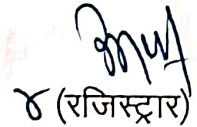 (रजिस्ट्रार)